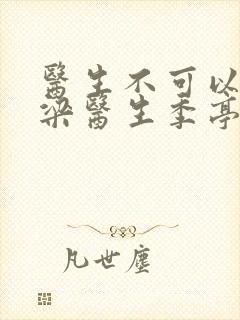 醫生不可以
梁醫生季亭
凡世塵